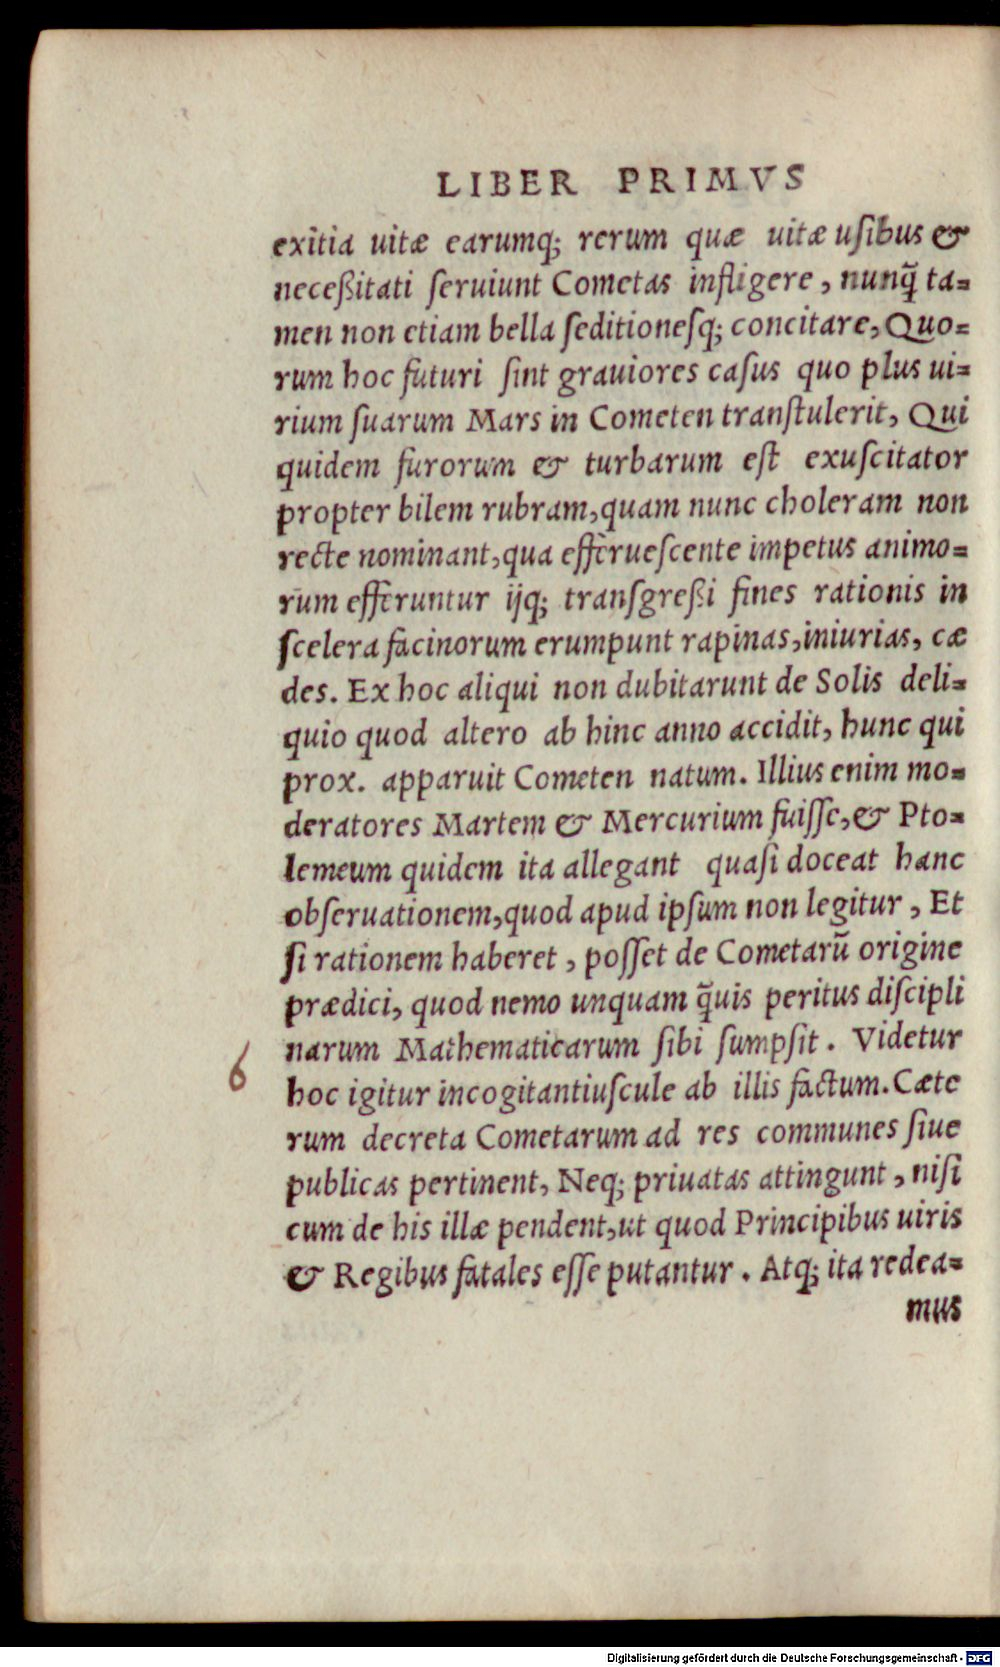 LIBER PRIMVS
exitia uitæ earumq; rerum quæ uitæ uſibus &
neceßitati ſeruiunt Cometas infligere, nunq̃ ta=
men non etiam bella ſeditioneſq; concitare, Quo=
rum hoc futuri ſint grauiores caſus quo plus ui=
rium ſuarum Mars in Cometen tranſtulerit, Qui
quidem furorum & turbarum eſt exuſcitator
propter bilem rubram, quam nunc choleram non
recte nominant, qua efferueſcente impetus animo=
rum efferuntur ijq; tranſgreßi fines rationis in
ſcelera facinorum erumpunt rapinas, iniurias, cæ
des. Ex hoc aliqui non dubitarunt de Solis deli=
quio quod altero ab hinc anno accidit, hunc qui
prox. apparuit Cometen natum. Illius enim mo=
deratores Martem & Mercurium fuiſſe, & Pto=
lemeum quidem ita allegant quaſi doceat hanc
obſeruationem, quod apud ipſum non legitur, Et
ſi rationem haberet, poſſet de Cometarũ origine
prædici, quod nemo unquam q̃uis peritus diſcipli
narum Mathematicarum ſibi ſumpſit. Videtur
6
hoc igitur incogitantiuſcule ab illis factum. Cæte
rum decreta Cometarum ad res communes ſiue
publicas pertinent, Neq; priuatas attingunt, niſi
cum de his illæ pendent, ut quod Principibus uiris
& Regibus fatales eſſe putantur. Atq; ita redea=
mus
Digitalisierung gefördert durch die Deutsche Forschungsgemeinschaft - DFG